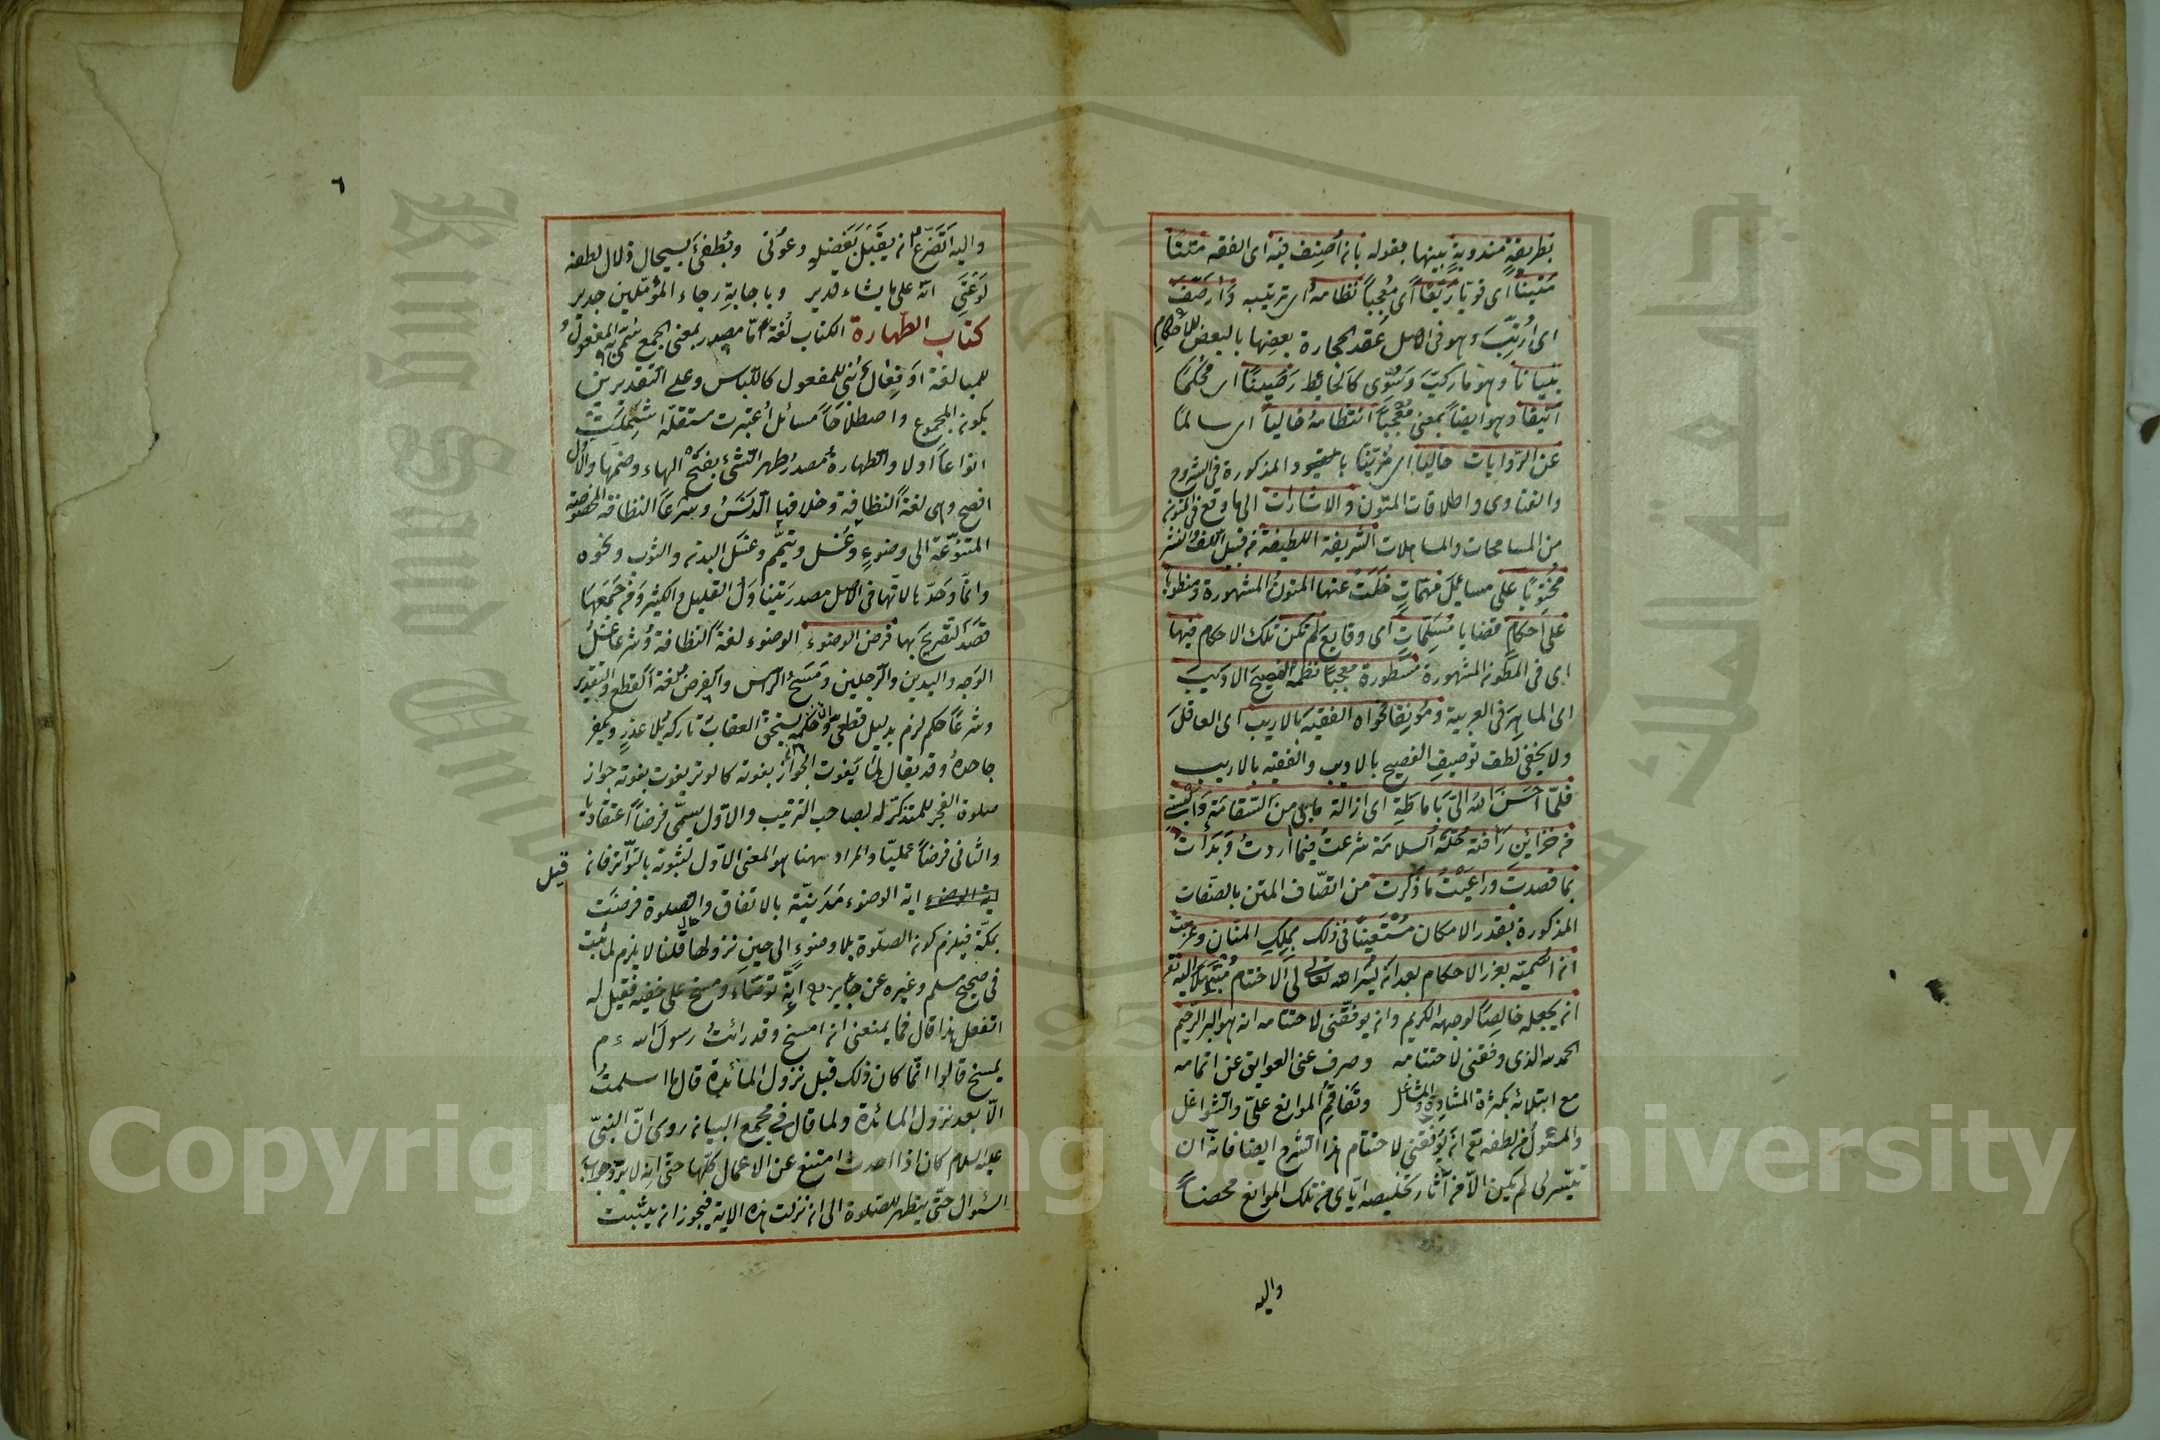 بطريقةٍ مندوبةٍ بينها بقوله بان اُصنِف فيه اى الفقه متناً
متيناً اى قويا رَيّقاً اى مُعجِباً نظامهُ اى ترتيبه وَارصّفَ
اى اُرتِّبَ وهو فى الاصل عَقد الحجارة بعضِها بالبعض للاحكام
بنيانا وهو ما ركبَ وسُوّى كالحائط رَصيناً اى محكما
انيقا وهو ايضاً بمعنى مُعجِباً انتظامهُ خالياً اى سالما
عن الروايات حاليا اى مُزيّناً بالقيود المذكورة فى الشروح
والفتاوى واطلاقات المتون والاشارات الى ما وقع فى المتون
من المسامحات والمساهلات الشريفة اللطيفة من قبيل اللف والنشر
مُحتوِياً على مسائل مهمّاتٍ خلَت عنها المتونُ المشهورة ومنطويا
على احكامِ قضايا مُسَلِّماتٍ اى وقايعَ لم تكن تلك الاحكام فيها
اى فى المتون المشهورة مسطورة معجبا نظمه الفصيحَ الاديبَ
اى الماهرَ فى العربية ومُونِقا فحواه الفقيهَ الاريب اى العاقلَ
ولا يخفى لطف توصيف الفصيح بالاديب والفقيه بالاريب
فلمّا احسَنَ اللهُ الىّ باماطةِ اى ازالة مابى من السّقامة وَالبسنى
من خزائن رأفته حُلّةَ السلامة شرعتُ فيما اردتُ وَبَدَأتُ
بما قصدتَ وراعيتُ ما ذكرت من اتصاف المتن بالصفات
المذكورة بقدر الامكان مُستعيناً فى ذلك بملِكِ المنان وعزمت
ان اسميه بغرر الاحكام بعد ان يسّر الله تعالى لى الاختتام مُبتهِلاً اليه تع
ان يجعله خالِصاً لوجهه الكريم وان يوفقنى لاختتامه انه هو البر الرحيم
الحمد لله الذى وفقنى لاختتامه وصرف عنى العوايق عن اتمامه
مع ابتلائه بكثرة المشادة والمشاغل وتفاقُم الموانع علىّ والشواغل
والمسئول من لطفه تع ان يوفقنى لاختتام هذا الشرح ايضا فانه ان
تيسر لى لم يكن الاّ من آثار تخليصه ايّاى من تلك الموانع محضاً
واليه
٦
واليه اتضرّع ان يقبَل بفضلهِ دعوتى ويُطفىَٔ بسجال زلال لطفه
لَوعَتى انه على ما يشاء قدير وباجابةِ رجاء المؤمّلين جدير
كتاب الطهارة الكتاب لُغة امّا مصدر بمعنى الجمع سُمّى به المفعول
للمبالغة او فِعال بُنى للمفعول كاللباس وعلى التقديرين
يكون المجموع واصطلاحًا مسائل اُعتبرت مستقلة شملت
انواعا اولا والطهارةُ مصدرُ طهر الشئ بفتح الهاء وضمها والاول
افصح وهى لغةً النظافة وخلافها الدنَسُ وشرعاً النظافة المخصوصة
المتنوّعة الى وضوءٍ وغُسل وتيمّم وغسل البدن والثوب ونحوه
وانما وحّدها لانها فى الاصل مصدر يتناول القليل والكثير ومن جَمَعَها
قصَد التصريحَ بها فرض الوضوء الوضوء لغةً النظافة وشرعا غسلُ
الوجه واليدين والرجلين ومَسحُ الراس والفرضُ لغة القطع والتقدير
وشرعًا حكم لزم بدليل قطعى وحكمه ان يستحق العقابَ تاركه بلا عذرٍ ويكفر
جاحدهُ وقد يقال لما يفوت الجواز بفوته كالوتر يفوت بفوته جواز
صلوة الفجر للمتذكر له لصاحب الترتيب والاوّل يسمّى فرضاً اعتقاديا
والثانى فرضاً عمليّا والمراد ههنا هو المعنى الاوّل لثبوته بالتواتر فان قيل
اية الوضوء مَدَنيّة بالاتفاق والصلوة فرضَت
بمكّة فيلزم كون الصلوة بلا وضوءٍ الى حين نزولها قلنا لا يلزم لما ثبت
فى صحيح مسلم وغيره عن جابر انه توضأ ومسح على خفيه فقيل له
اتفعل هذا قال فما يمنعنى ان امسح وقد رايتُ رسول الله ءم
يمسح قالوا انّما كان ذلك قبل نزول المائدة قال ما اسلمتُ
الاّ بعد نزول المائدة ولما قال فى مجمع البيان روى انّ النبىّ
عليه السلام كان اذا احدث امتنع عن الاعمال كلّها حتى انه لا يردّ جواب
السؤال حتّى يتطهر للصلوة الى ان نزلت هذه الاية فيجوز ان يثبت